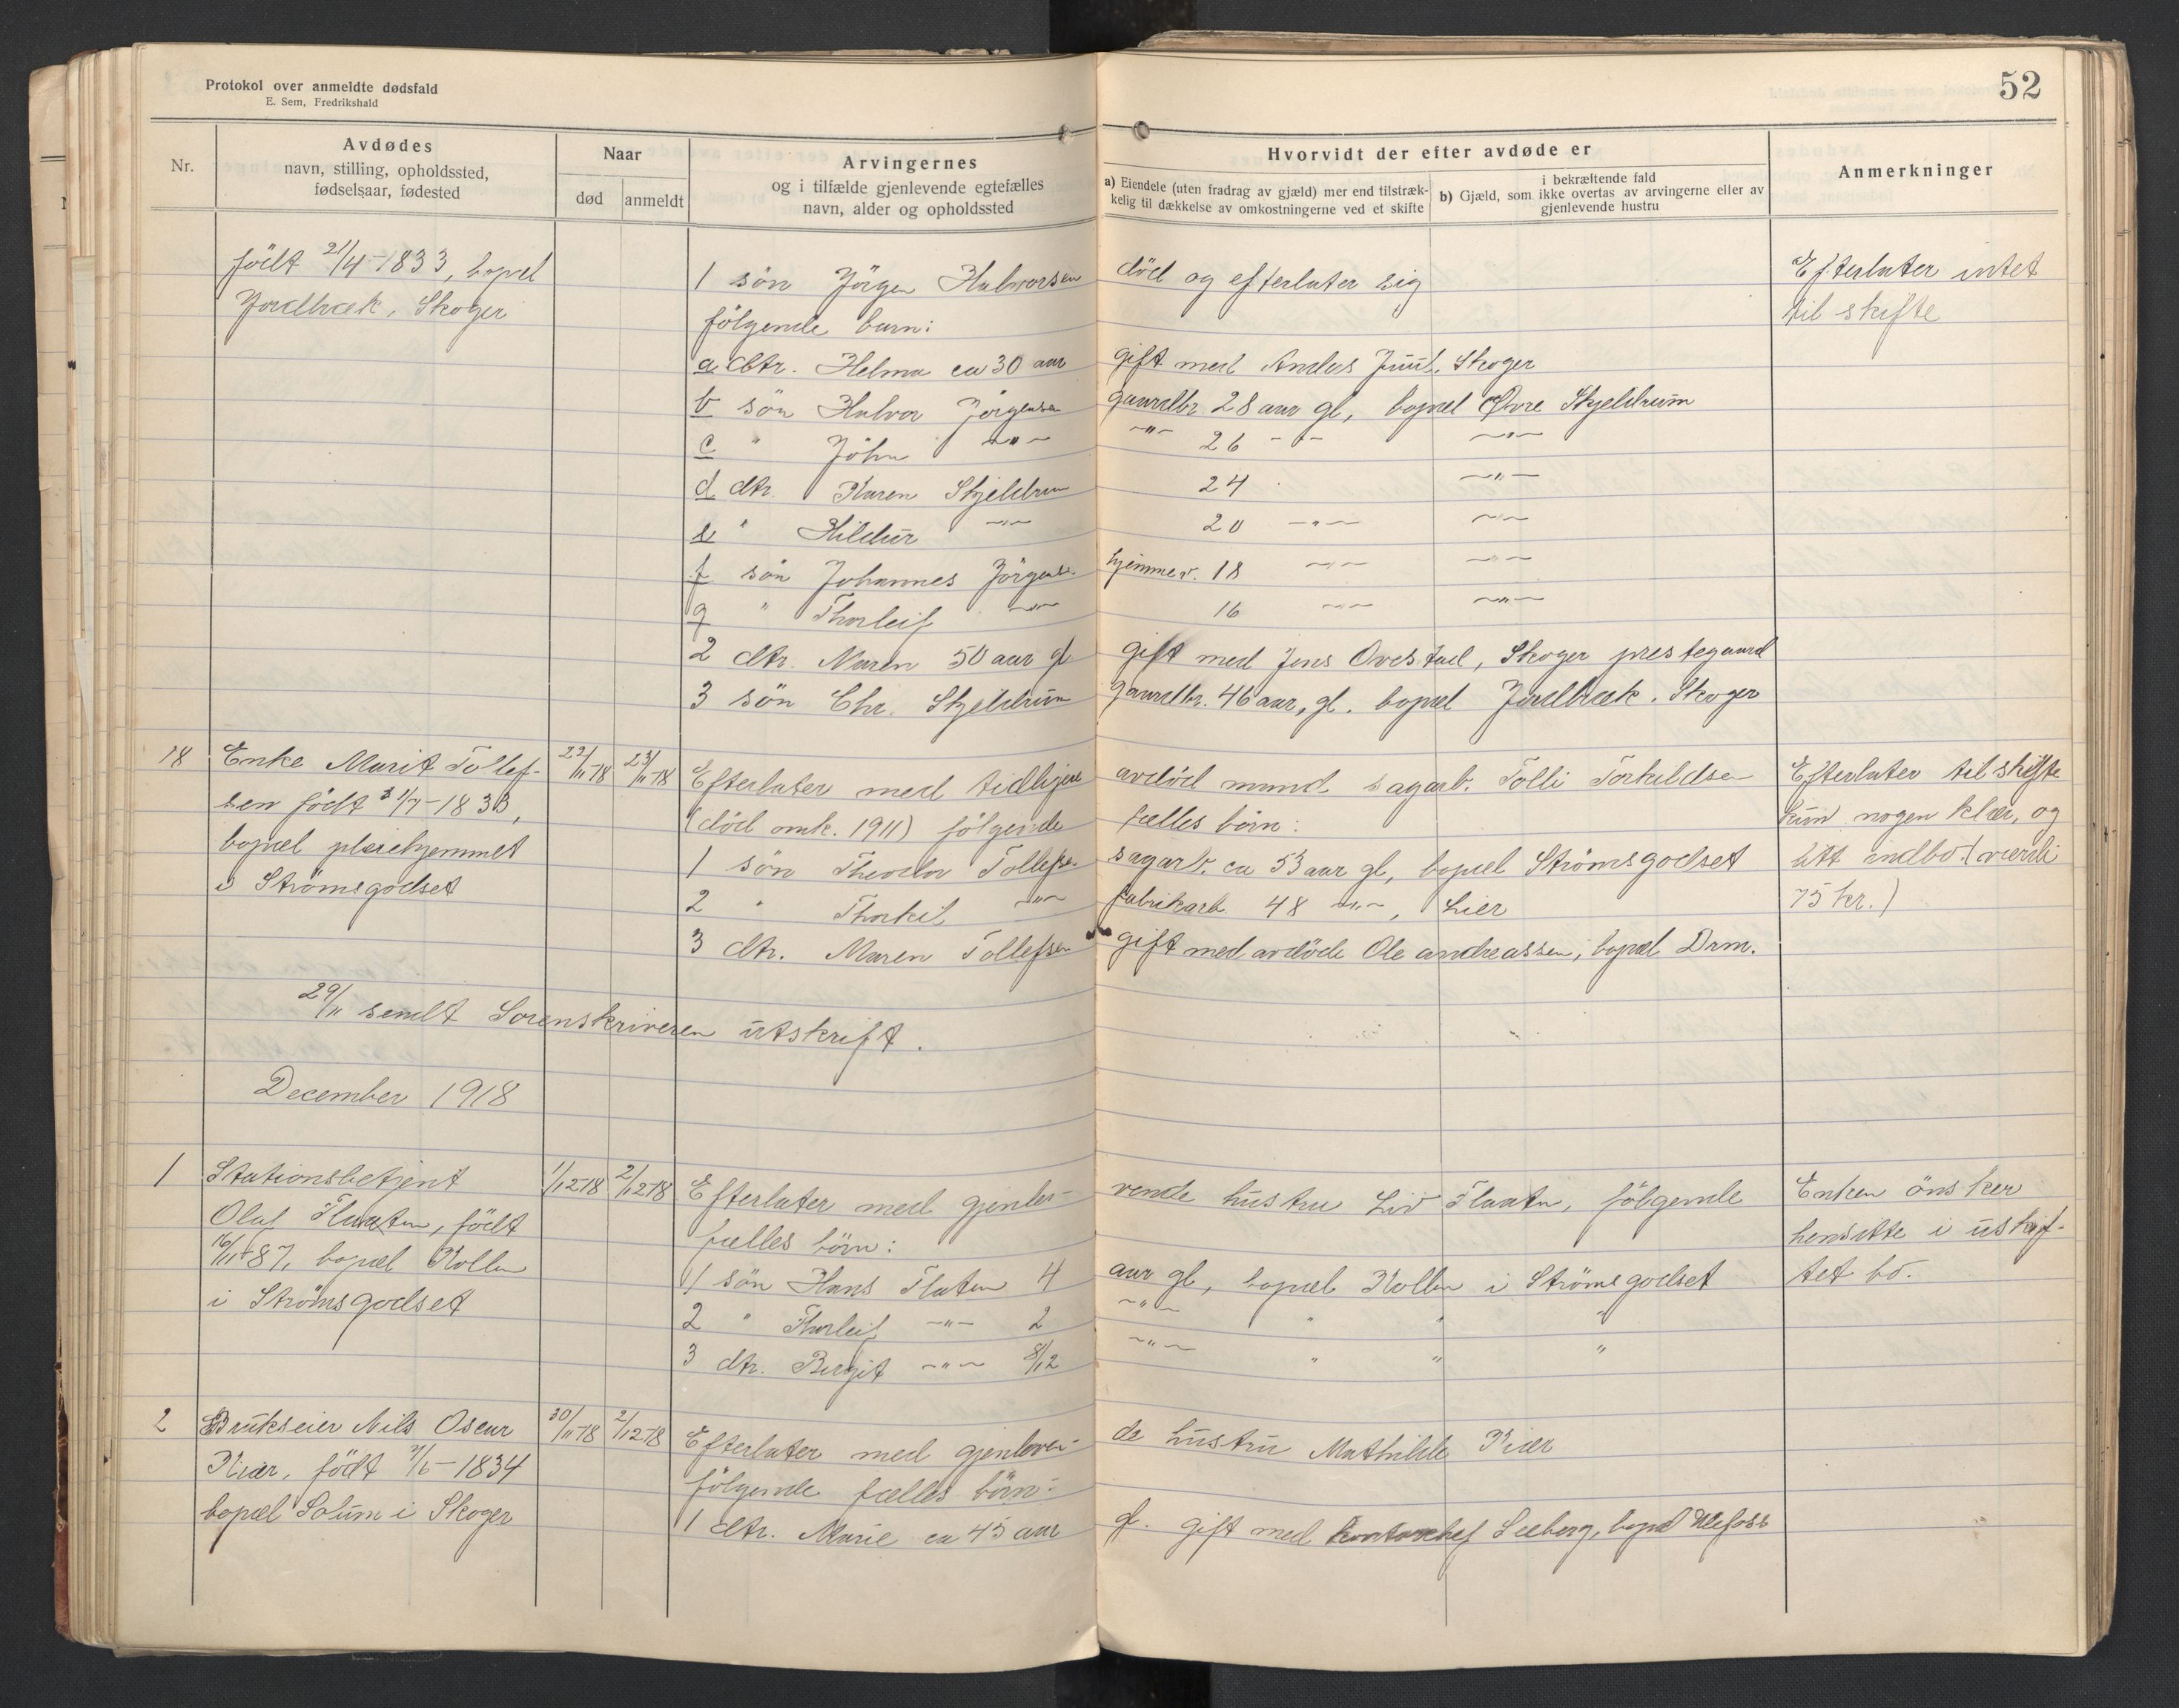 Protokol over anmeldte dødsfald
E. Sem, Fredrikshald
52
Nr.
Avdødes
navn, stilling, opholdssted,
fødselsaar, fødested
Naar
død
anmeldt
Arvingernes
og i tilfælde gjenlevende egtefælles
navn, alder og opholdssted
Hvorvidt der efter avdøde er
a) Eiendele (uten fradrag av gjæld) mer end tilstræk-
kelig til dækkelse av omkostningerne ved et skifte
i bekræftende fald
b) Gjæld, som ikke overtas av arvingerne eller av
gjenlevende hustru
Anmerkninger
født 21/4-1833, bopæl
Jordbræk, Skoger
1 søn Jörgen Halvorsen død og efterlater sig
følgende barn:
a dtr. Helma ca 30 aar gift med Anders Juul, Skoger
b søn Halvor Jörgensen gaardbr. 28 aar gl, bopæl Øvre Skjeldrum
c " John -"- -"- 26 -"- -"-
d dtr. Karen Skjeldrum 24 -"-
e " Hildur -"- 20 -"- -"-
f søn Johannes Jörgensen hjemmev. 18 -"- -"-
g " Thorleif -"- 16 -"- -"-
2 dtr. Maren 50 aar gl gift med Jens Ovestad, Skoger prestegaard
3 søn Chr. Skjeldrum gaardbr. 46 aar, gl. bopæl Jordbræk, Skoger
Efterlater intet
til skifte
18
Enke Marit Tollef-
sen født 31/7-1833,
bopæl pleiehjemmet
i Strömsgodset
22/11-18
23/11-18
Efterlater med tidligere avdöd mand sagarb. Tolli Torkildsen
(död omk. 1911) følgende fælles börn:
1 søn Theodor Tollefsen sagarb. ca 53 aar gl, bopæl Strömsgodset
2 " Thorkil -"- fabrikarb. 48 -"-, Lier
3 dtr. Maren Tollefsen gift med avdöde Ole andreassen, bopæl Drm.
Efterlater til skifte
kun nogen klær, og
litt indbo (værdi
75 kr.)
29/11 sendt Sorenskriveren utskrift.
December 1918
1
Stationsbetjent
Olaf Flaaten, født
16/11-87, bopæl Kollen
i Strömsgodset
1/12-18
2/12-18
Efterlater med gjenle-vende hustru Liv Flaatn, følgende
fælles börn:
1 sön Hans Flaten 4 aar gl, bopæl Kollen i Strömsgodset
2 " Thorleif -"- 2 -"- " " "
3 dtr. Birgit -"- 8/12 -"- " " "
Enken önsker
hensitte i uskif-
tet bo.
2
Brukseier Nils Oscar
Kiær, født
bopæl Solum i Skoger
30/11-18
2/12-18
Efterlater med gjenleven-de hustru Mathilde Kiær
følgende fælles börn:
1 dtr. Marie ca 45 aar gl. gift med kontorchef Seeberg, bopæl Ulefoss